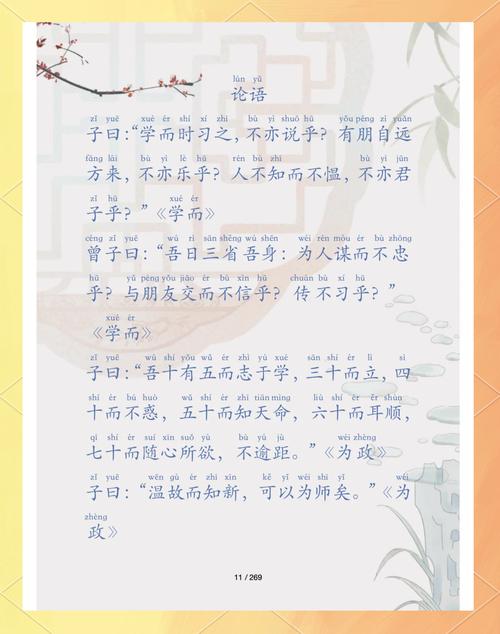 lún yǔ
论语
zǐ yuē xué ér shí xí zhī bù yì shuō hū yǒu péng zì yuǎn
子曰：“学而时习之，不亦说乎？有朋自远
fāng lái bù yì lè hū rén bù zhī bù yì jūn
方来，不亦乐乎？人不知而不愠，不亦君
zǐ hū
子乎？”《学而》
céng zǐ yuē wú rì sān shěng wú shēn wéi rén móu ér bù zhōng
曾子曰：“吾日三省吾身：为人谋而不忠
hū yǔ péng yǒu jiāo ér bù xìn hū chuán bù xí hū
乎？与朋友交而不信乎？传不习乎？”
xué ér
《学而》
zǐ yuē wú shí yǒu wǔ ér zhì yú xué sān shí ér lì sì
子曰：“吾十有五而志于学，三十而立，四
shí ér bú huò wǔ shí ér zhī tiān mìng liù shí ér ěr shùn
十而不惑，五十而知天命，六十而耳顺，
qī shí ér suí xīn suǒ yù bù yú jù wéi zhèng
七十而随心所欲，不逾距。”《为政》
zǐ yuē wēn gù ér zhī xīn kě yǐ wéi shī yǐ wéi
子曰：“温故而知新，可以为师矣。”《为
zhèng
政》
11 / 269